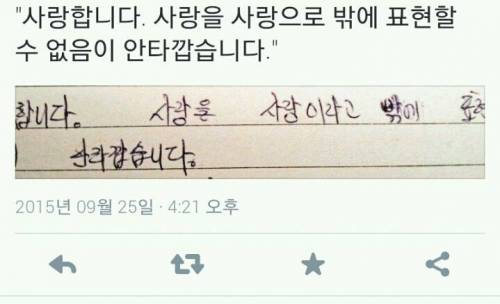 "사랑합니다. 사랑을 사랑으로 밖에 표현할
수 없음이 안타깝습니다."
합니다. 사랑을 사랑이라고 밖에 표현
안타깝습니다.
2015년 09월 25일 · 4:21 오후